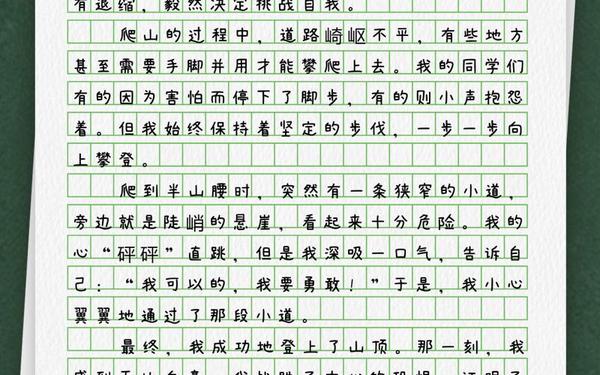 有退缩，毅然决定挑战自我。
爬山的过程中，道路崎岖不平，有些地方
甚至需要手脚并用才能攀爬上去。我的同学们
有的因为害怕而停下了脚步，有的则小声抱怨
着。但我始终保持着坚定的步伐，一步一步向
上攀登。
爬到半山腰时，突然有一条狭窄的小道，
旁边就是陡峭的悬崖，看起来十分危险。我的
心“砰砰”直跳，但是我深吸一口气，告诉自
己：“我可以的，我要勇敢！”于是，我小心
翼翼地通过了那段小道。
最终，我成功地登上了山顶。那一刻，我